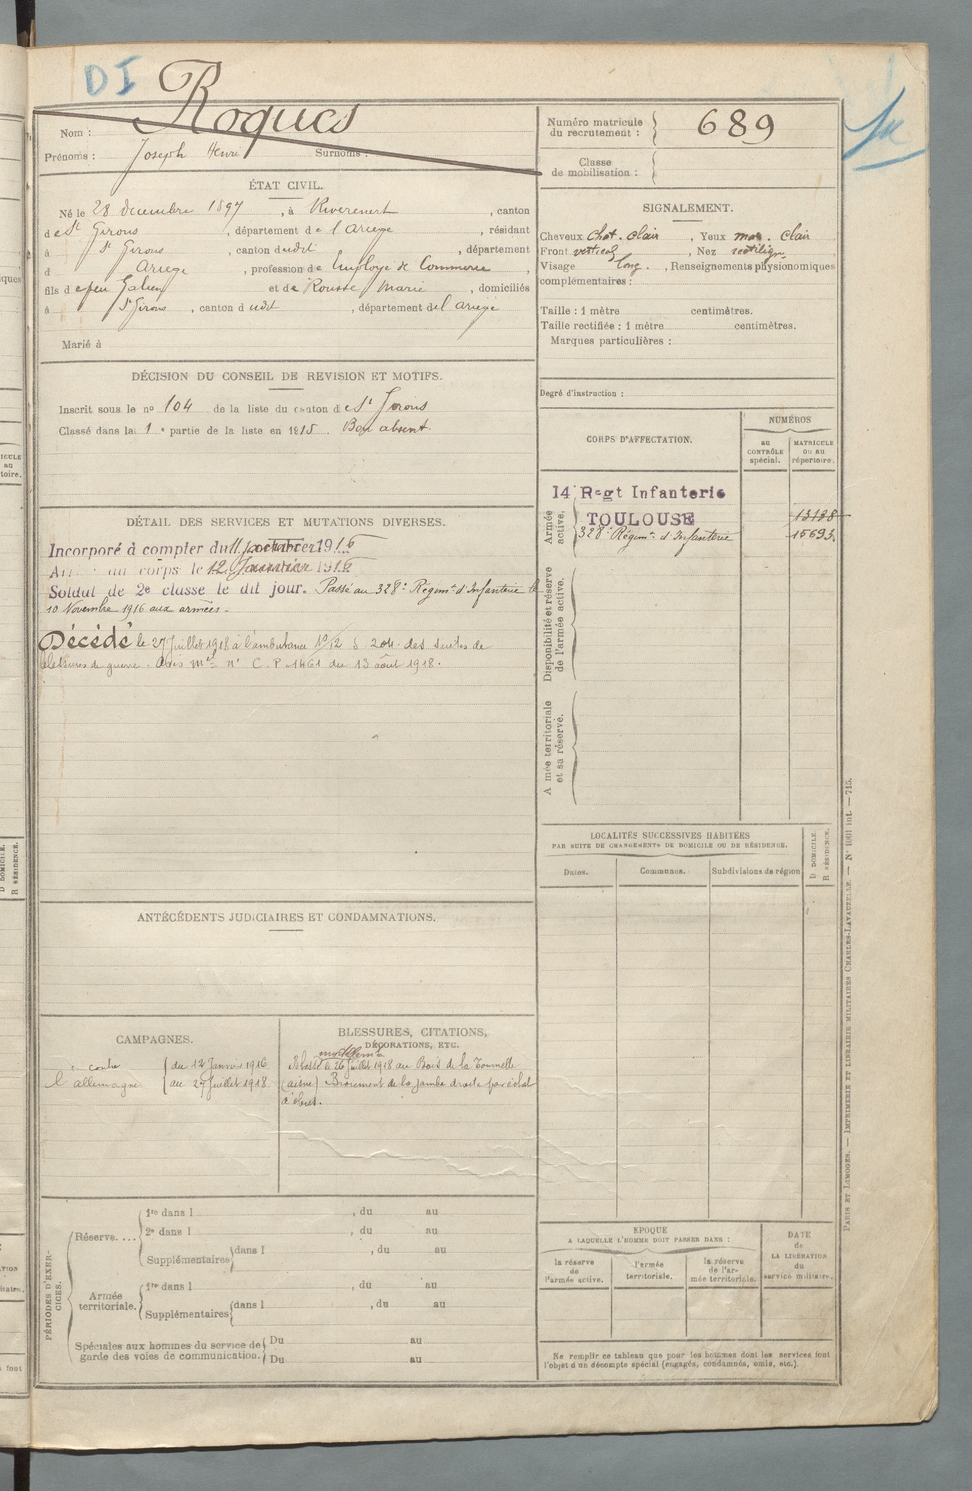 DI
Roques
Nom :
Prénoms : Joseph Henri Surnoms :
Numéro matricule du recrutement : 689
Classe de mobilisation :
ÉTAT CIVIL.
Né le 28 décembre 1897, à Riverenert, canton
de St Girons, département de l'Ariège, résidant
à St Girons, canton dudit, département
d Ariège, profession de Employé de Commerce,
fils de feu Galien et de Rousse Marie, domiciliés
à St Girons, canton dudit, département de l'Ariège
Marié à
SIGNALEMENT.
Cheveux chat. clair, Yeux mar. clair
Front vertical, Nez rectilign.
Visage long., Renseignements physionomiques
complémentaires :
Taille : 1 mètre centimètres.
Taille rectifiée : 1 mètre centimètres.
Marques particulières :
Degré d'instruction :
DÉCISION DU CONSEIL DE REVISION ET MOTIFS.
Inscrit sous le no 104 de la liste du canton de St Girons
Classé dans la 1e partie de la liste en 1915. Bon absent.
DÉTAIL DES SERVICES ET MUTATIONS DIVERSES.
Incorporé à compter du 11 1916
Arrivé au corps le 12 Janvier 1916
Soldat de 2e classe le dit jour. Passé au 328e Régimt d'Infanterie le
10 Novembre 1916 aux armées.
Décédé le 27 Juillet 1918 à l'ambulance 12 S. 204. des suites de
blessures de guerre. Avis mel no C.P. 1461 du 13 août 1918.
CORPS D'AFFECTATION.
NUMÉROS
AU CONTRÔLE spécial.
MATRICULE ou au répertoire.
Armée active.
14e Regt Infanterie
TOULOUSE 13188
328e Régimt d'Infanterie 15693.
Disponibilité et réserve de l'armée active.
Armée territoriale et sa réserve.
LOCALITÉS SUCCESSIVES HABITÉES
PAR SUITE DE CHANGEMENTS DE DOMICILE OU DE RÉSIDENCE.
Dates.
Communes.
Subdivisions de région
D DOMICILE.
R RÉSIDENCE.
ANTÉCÉDENTS JUDICIAIRES ET CONDAMNATIONS.
CAMPAGNES.
contre l'allemagne
du 12 Janvier 1916
au 27 Juillet 1918.
BLESSURES, CITATIONS,
DÉCORATIONS, ETC.
mortellemt
Blessé le 26 Juillet 1918 au Bois de la Tournelle
(aisne) Broiement de la jambe droite par éclat
d'obus.
PÉRIODES D'EXERCICES.
Réserve....
1re dans l , du au
2e dans l , du au
Supplémentaires dans l , du au
Armée territoriale.
1re dans l , du au
Supplémentaires dans l , du au
Spéciales aux hommes du service de garde des voies de communication.
Du au
Du au
EPOQUE
A LAQUELLE L'HOMME DOIT PASSER DANS :
la réserve de l'armée active.
l'armée territoriale.
la réserve de l'armée territoriale.
DATE de LA LIBÉRATION du service militaire.
Ne remplir ce tableau que pour les hommes dont les services font
l'objet d'un décompte spécial (engagés, condamnés, omis, etc.).
PARIS ET LIMOGES. — IMPRIMERIE ET LIBRAIRIE MILITAIRES CHARLES-LAVAUZELLE. — No 1001 int. — 715.